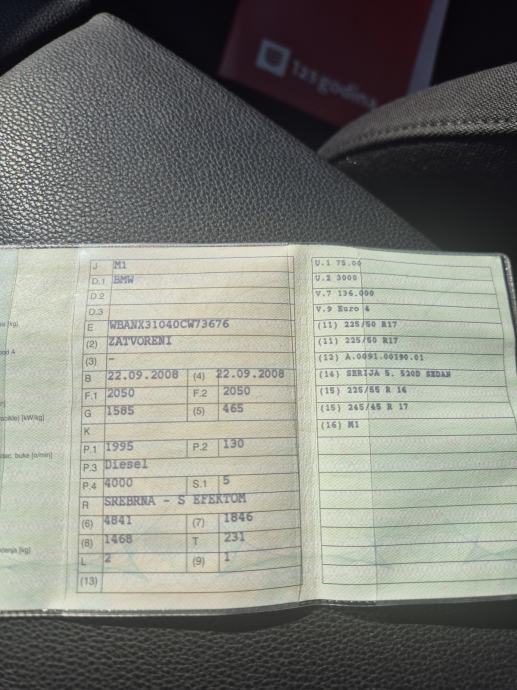 125 godina
J M1
D.1 BMW
D.2
D.3
E WBANX31040CW73676
(2) ZATVORENI
(3) -
B 22.09.2008 (4) 22.09.2008
F.1 2050 F.2 2050
G 1585 (5) 465
K
P.1 1995 P.2 130
P.3 Diesel
P.4 4000 S.1 5
R SREBRNA - S EFEKTOM
(6) 4841 (7) 1846
(8) 1468 T 231
L 2 (9) 1
(13)
[kg]
[kW/kg]
buke [o/min]
[kg]
U.1 75.00
U.2 3000
V.7 136.000
V.9 Euro 4
(11) 225/50 R17
(11) 225/50 R17
(12) A.0091.00190.01
(14) SERIJA 5. 520D SEDAN
(15) 225/55 R 16
(15) 245/45 R 17
(16) M1